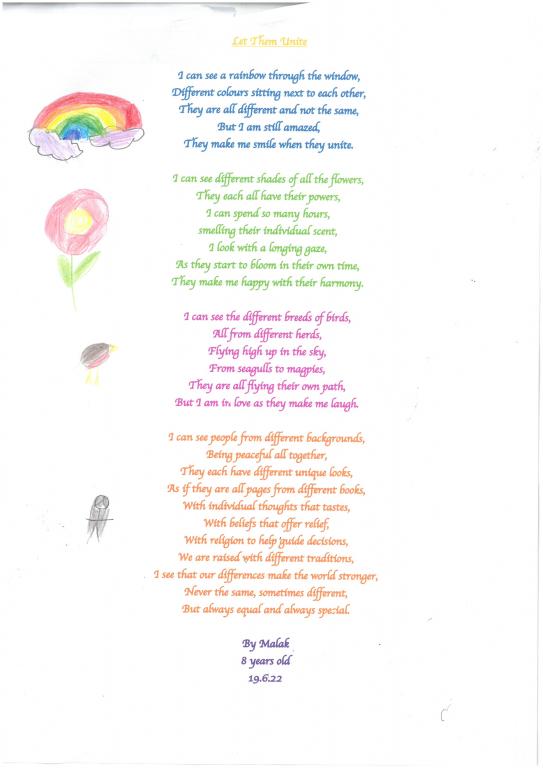 Let Them Unite
I can see a rainbow through the window,
Different colours sitting next to each other,
They are all different and not the same,
But I am still amazed,
They make me smile when they unite.
I can see different shades of all the flowers,
They each all have their powers,
I can spend so many hours,
smelling their individual scent,
I look with a longing gaze,
As they start to bloom in their own time,
They make me happy with their harmony.
I can see the different breeds of birds,
All from different herds,
Flying high up in the sky,
From seagulls to magpies,
They are all flying their own path,
But I am in love as they make me laugh.
I can see people from different backgrounds,
Being peaceful all together,
They each have different unique looks,
As if they are all pages from different books,
With individual thoughts that tastes,
With beliefs that offer relief,
With religion to help guide decisions,
We are raised with different traditions,
I see that our differences make the world stronger,
Never the same, sometimes different,
But always equal and always special.
By Malak
8 years old
19.6.22